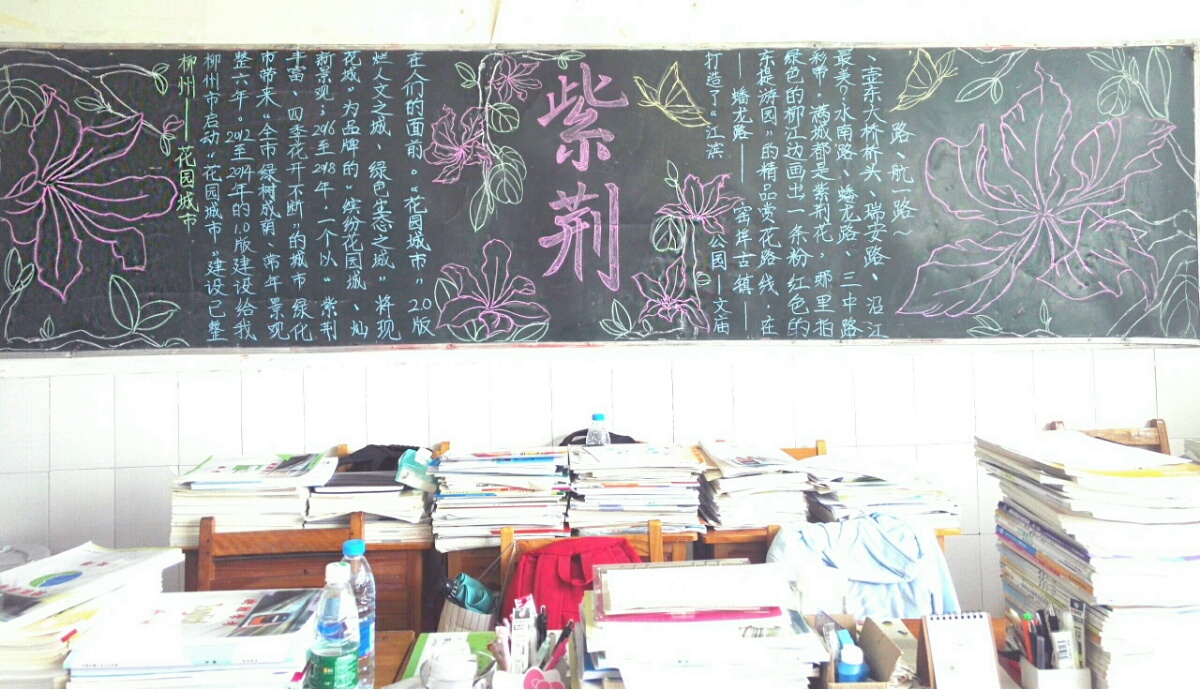 柳州——花园城市
柳州市启动“花园城市”建设已整
整六年。2012至2014年的1.0版建设给我
市带来“全市绿树成荫、常年景观
丰富、四季花开不断”的城市绿化
新景观；2016至2018年，一个以“紫荆
花城”为品牌的“缤纷花园城、灿
烂人文之城、绿色生态之城”将现
在人们的面前。“花园城市”2.0版
紫荆
打造了“江滨公园—文庙
——蟠龙路——窑埠古镇——
东堤游园”的精品赏花路线，在
绿色的柳江边画出一条粉红色的
彩带，满城都是紫荆花，哪里拍
最美？水南路、蟠龙路、三中路
、壶东大桥桥头、瑞安路、沿江
路、航一路～